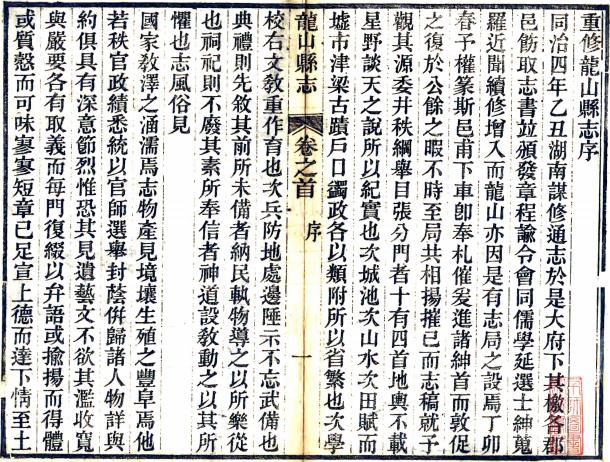 重修龍山縣志序
同治四年乙丑湖南謀修通志於是大府下其檄各郡
邑飭取志書並頒發章程諭令會同儒學延選士紳蒐
羅近聞續修增入而龍山亦因是有志局之設焉丁卯
春予權篆斯邑甫下車卽奉札催爰進諸紳首而敦促
之復於公餘之暇不時至局共相揚搉已而志稿就予
觀其源委井秩綱舉目張分門者十有四首地輿不載
星野談天之說所以紀實也次城池次山水次田賦而
墟市津梁古蹟戶口蠲政各以類附所以省繁也次學
龍山縣志 卷之首 序 一
校右文教重作育也次兵防地處邊陲示不忘武備也
典禮則先敘其前所未備者納民軌物導之以所樂從
也祠祀則不廢其素所奉信者神道設敎動之以其所
懼也志風俗見
國家敎澤之涵濡焉志物產見境壤生殖之豐阜焉他
若秩官政績悉統以官師選舉封蔭倂歸諸人物詳與
約俱具有深意節烈惟恐其見遺藝文不欲其濫收寬
與嚴要各有取義而每門復綴以弁語或揄揚而得體
或質慤而可味寥寥短章已足宣上德而達下情至土